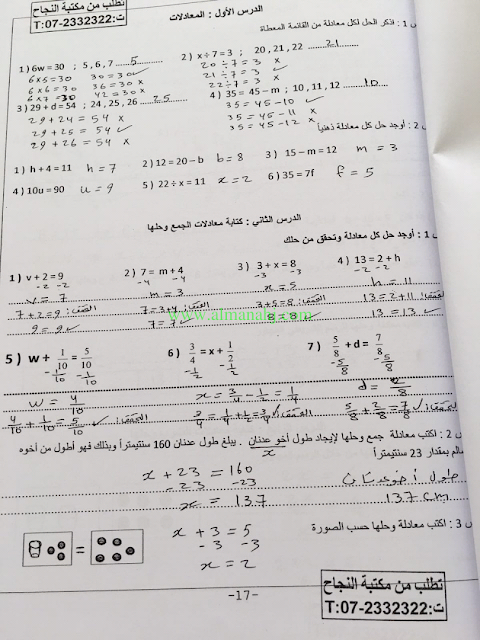 تطلب من مكتبة النجاح
ت:2332322-07:T
الدرس الأول : المعادلات
س 1 : اذكر الحل لكل معادلة من القائمة المعطاة
1) 6w = 30 ; 5, 6, 7 ....5....
2) x ÷ 7 = 3 ; 20, 21, 22 ....21....
6x5=30 30=30 ✓
20 ÷ 7 = 3 x
6x6=30 36=30 x
21 ÷ 7 = 3 ✓
6x7=30 42=30 x
22 ÷ 7 = 3 x
3) 29 + d = 54 ; 24, 25, 26 ....25
4) 35 = 45 – m ; 10, 11, 12 ....10....
29 + 24 = 54 x
35 = 45 - 10 ✓
29 + 25 = 54 ✓
35 = 45 - 11 x
29 + 26 = 54 x
35 = 45 - 12 x
س 2 : أوجد حل كل معادلة ذهنياً
1) h + 4 = 11 h = 7 2) 12 = 20 – b b = 8 3) 15 – m = 12 m = 3
4) 10u = 90 u = 9 5) 22 ÷ x = 11 x = 2 6) 35 = 7f f = 5
الدرس الثاني : كتابة معادلات الجمع وحلها
س 1 : أوجد حل كل معادلة وتحقق من حلك
1) v + 2 = 9 2) 7 = m + 4 3) 3 + x = 8 4) 13 = 2 + h
-2 -2 -4 -4 -3 -3 -2 -2
v = 7 m = 3 x = 5 h = 11
7 + 2 = 9 التحقق: 7 = 3 + 4 التحقق: 3 + 5 = 8 التحقق: 13 = 2 + 11 التحقق:
9 = 9 ✓ 7 = 7 ✓ 8 = 8 ✓ 13 = 13 ✓
www.almanahj.com
5) w + 1/10 = 5/10 6) 3/4 = x + 1/2 7) 5/8 + d = 7/8
-1/10 -1/10 -1/2 -1/2 -5/8 -5/8
w = 4/10 x = 3/4 - 1/2 = 1/4 d = 2/8
4/10 + 1/10 = 5/10 ✓ التحقق: 3/4 = 1/4 + 1/2 = 3/4 ✓ التحقق: 5/8 + 2/8 = 7/8 ✓ التحقق:
س 2 : اكتب معادلة جمع وحلها لإيجاد طول أخو عدنان . يبلغ طول عدنان 160 سنتيمتراً وبذلك فهو أطول من أخوه
x
سالم بمقدار 23 سنتيمتراً
x + 23 = 160
-23 -23
طول أخو عدنان
x = 137
137 cm
س 3 : اكتب معادلة وحلها حسب الصورة
x + 3 = 5
=
-3 -3
x = 2
تطلب من مكتبة النجاح
ت:2332322-07:T
-17-